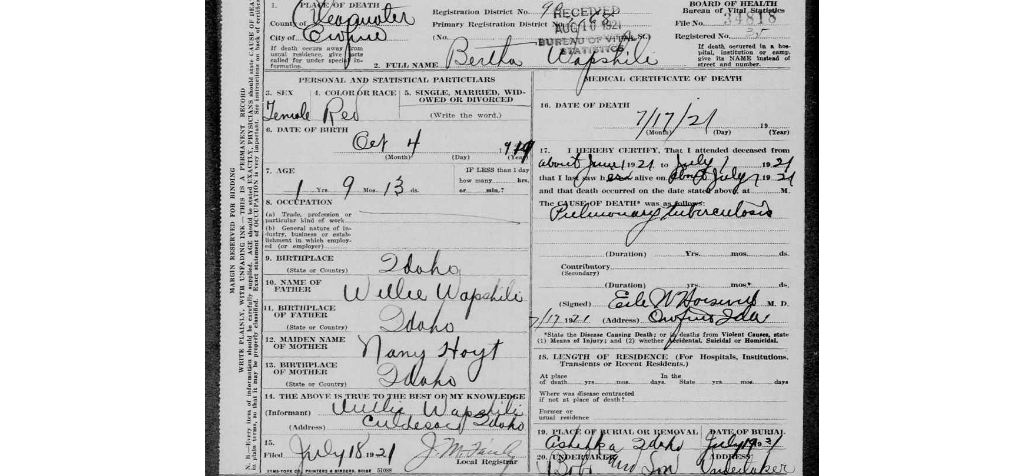 1. PLACE OF DEATH
County of Clearwater
City of Orofino
If death occurs away from usual residence, give facts called for under special information.
Registration District No.
Primary Registration District No.
(No.
RECEIVED
AUG 10 1921
BUREAU OF VITAL STATISTICS
BOARD OF HEALTH
Bureau of Vital Statistics
File No. 34818
Registered No.
If death occurred in a hospital, institution or camp, give its NAME instead of street and number.
2. FULL NAME Bertha Wapshili
MARGIN RESERVED FOR BINDING
WRITE PLAINLY, WITH UNFADING INK—THIS IS A PERMANENT RECORD
PERSONAL AND STATISTICAL PARTICULARS
3. SEX
4. COLOR OR RACE
5. SINGLE, MARRIED, WIDOWED OR DIVORCED
Female Red
(Write the word.)
6. DATE OF BIRTH
Oct 4
(Month) (Day) (Year)
7. AGE
IF LESS than 1 day
how many hrs.
1 Yrs. 9 Mos. 13 ds. or min.?
8. OCCUPATION
(a) Trade, profession or particular kind of work
(b) General nature of industry, business or establishment in which employed (or employer)
9. BIRTHPLACE Idaho
(State or Country)
10. NAME OF FATHER Willie Wapshili
11. BIRTHPLACE OF FATHER Idaho
(State or Country)
12. MAIDEN NAME OF MOTHER Nany Hoyt
13. BIRTHPLACE OF MOTHER Idaho
(State or Country)
14. THE ABOVE IS TRUE TO THE BEST OF MY KNOWLEDGE
(Informant) Willie Wapshili
(Address) Culdesac Idaho
15.
Filed July 18 1921
Local Registrar
MEDICAL CERTIFICATE OF DEATH
16. DATE OF DEATH
7/17/21 19
(Month) (Day) (Year)
17. I HEREBY CERTIFY, That I attended deceased from
about June 1 1921 to July 1 1921
that I last saw her alive on about July 1921
and that death occurred on the date stated above, at M.
The CAUSE OF DEATH* was as follows:
Pulmonary tuberculosis
(Duration) Yrs. mos. ds.
Contributory
(Secondary)
(Duration) yrs. mos. ds.
(Signed) M. D.
7/17 1921 (Address) Orofino Ida
*State the Disease Causing Death; or in deaths from Violent Causes, state
(1) Means of Injury; and (2) whether Accidental, Suicidal or Homicidal.
18. LENGTH OF RESIDENCE (For Hospitals, Institutions, Transients or Recent Residents.)
At place of death yrs. mos. days. In the State yrs. mos. days.
Where was disease contracted if not at place of death?
Former or usual residence
19. PLACE OF BURIAL OR REMOVAL DATE OF BURIAL
Idaho July 19
20. UNDERTAKER
and Son Undertaker